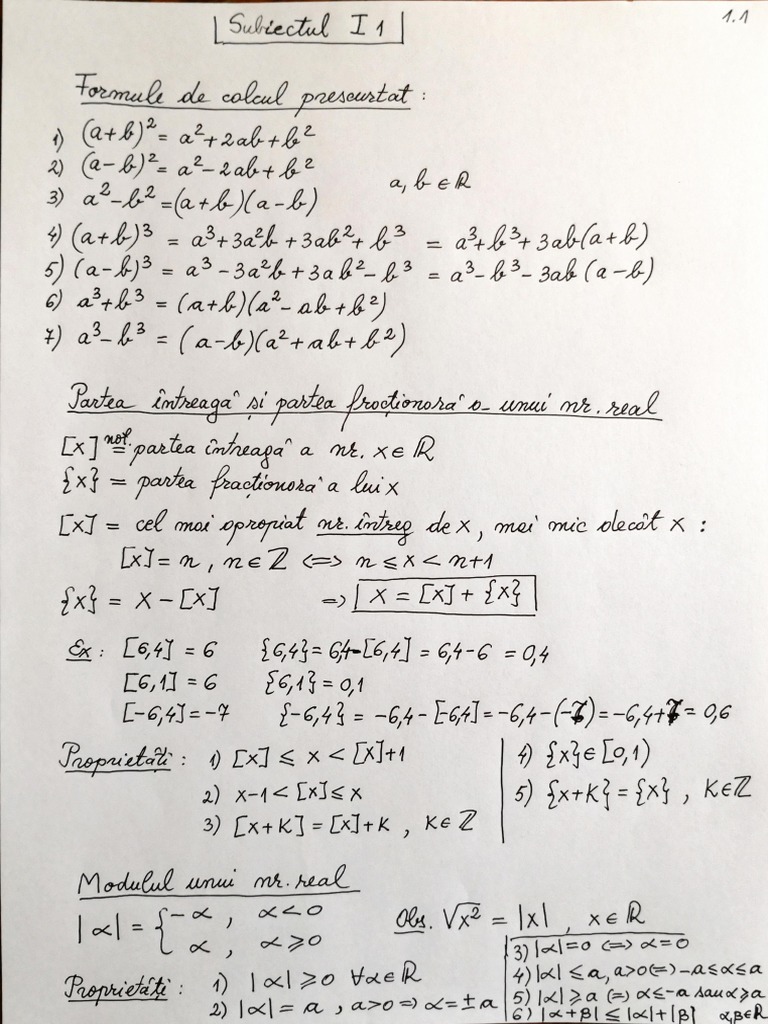 1.1
Subiectul I 1
Formule de calcul prescurtat :
1) (a+b)² = a²+2ab+b²
2) (a-b)² = a²-2ab+b²
a, b ∈ ℝ
3) a²-b² = (a+b)(a-b)
4) (a+b)³ = a³+3a²b+3ab²+b³ = a³+b³+3ab(a+b)
5) (a-b)³ = a³-3a²b+3ab²-b³ = a³-b³-3ab(a-b)
6) a³+b³ = (a+b)(a²-ab+b²)
7) a³-b³ = (a-b)(a²+ab+b²)
Partea întreagă și partea fracționară a unui nr. real
[x] not.= partea întreagă a nr. x∈ℝ
{x} = partea fracționară a lui x
[x] = cel mai apropiat nr. întreg de x, mai mic decât x :
[x] = n, n∈ℤ <=> n ≤ x < n+1
{x} = x-[x] => x = [x] + {x}
Ex: [6,4] = 6 {6,4} = 6,4-[6,4] = 6,4-6 = 0,4
[6,1] = 6 {6,1} = 0,1
[-6,4] = -7 {-6,4} = -6,4-[-6,4] = -6,4-(-7) = -6,4+7 = 0,6
Proprietăți : 1) [x] ≤ x < [x]+1
2) x-1 < [x] ≤ x
3) [x+K] = [x]+K, K∈ℤ
4) {x}∈[0,1)
5) {x+K} = {x}, K∈ℤ
Modulul unui nr. real
|α| = { -α, α<0
α, α≥0
Obs. √x² = |x|, x∈ℝ
Proprietăți : 1) |α| ≥ 0 ∀α∈ℝ
2) |α| = a, a>0 => α = ±a
3) |α|=0 <=> α=0
4) |α| ≤ a, a>0 (=) -a≤α≤a
5) |α| ≥ a (=) α≤-a sau α≥a
6) |α+β| ≤ |α|+|β| α,β∈ℝ